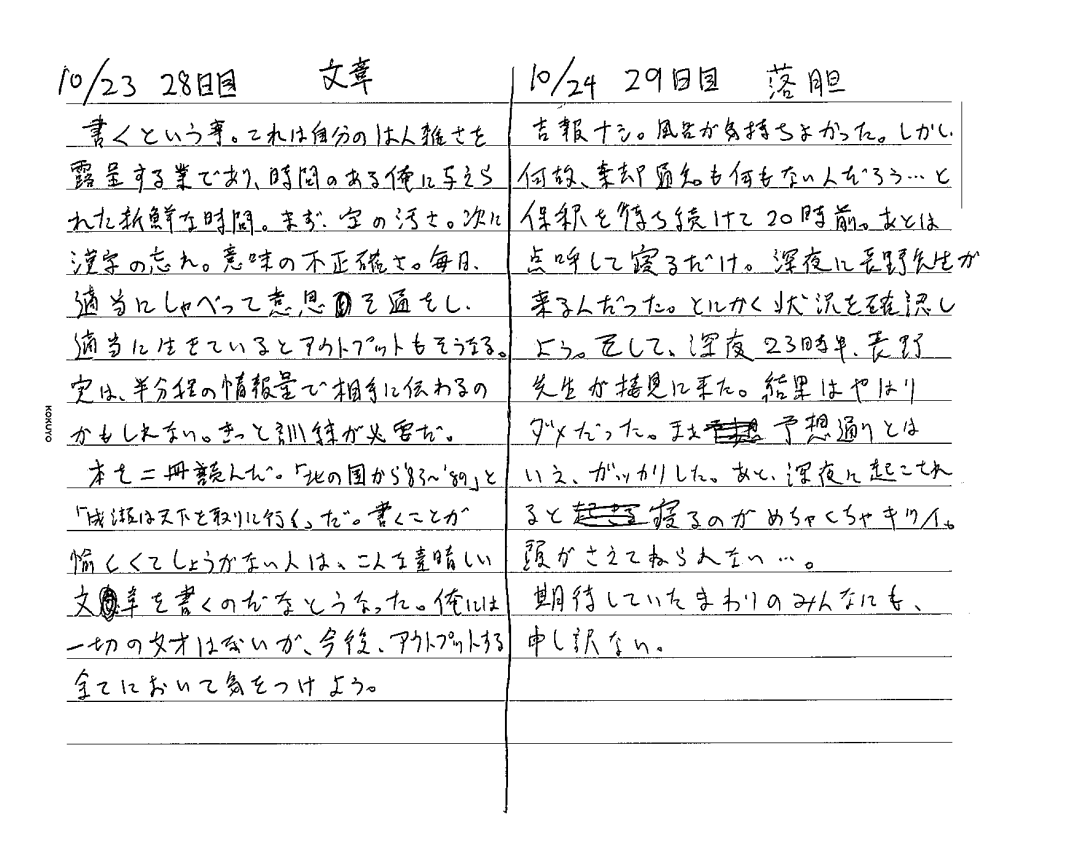 10/23 28日目 文章
書くという事。これは自分のは人雑さを
露呈する業であり、時間のある俺に与えら
れた新鮮な時間。まず、字の汚さ。次に
漢字の忘れ。意味の不正確さ。毎日、
適当にしゃべって意思を通をし、
適当に生きているとアウトプットもそうなる。
実は、半分程の情報量で相手に伝わるの
かもしれない。きっと訓練が必要だ。
本を二冊読んだ。「北の国から'83〜'89」と
「成瀬は天下を取りに行く」だ。書くことが
愉しくてしょうがない人は、こんな素晴しい
文章を書くのだなとうなった。俺には
一切の文才はないが、今後、アウトプットする
全てにおいて気をつけよう。
10/24 29日目 落胆
吉報ナシ。風呂が気持ちよかった。しかし
何故、棄却通知も何もない人だろう…と
保釈を待ち続けて20時前。あとは
点呼して寝るだけ。深夜に長野先生が
来るんだった。とにかく状況を確認し
よう。そして、深夜23時半、長野
先生が接見に来た。結果はやはり
ダメだった。まぁ 予想通りとは
いえ、ガッカリした。あと、深夜に起こされ
ると 寝るのがめちゃくちゃキツイ。
頭がさえてねられない…。
期待していたまわりのみんなにも、
申し訳ない。
KOKUYO